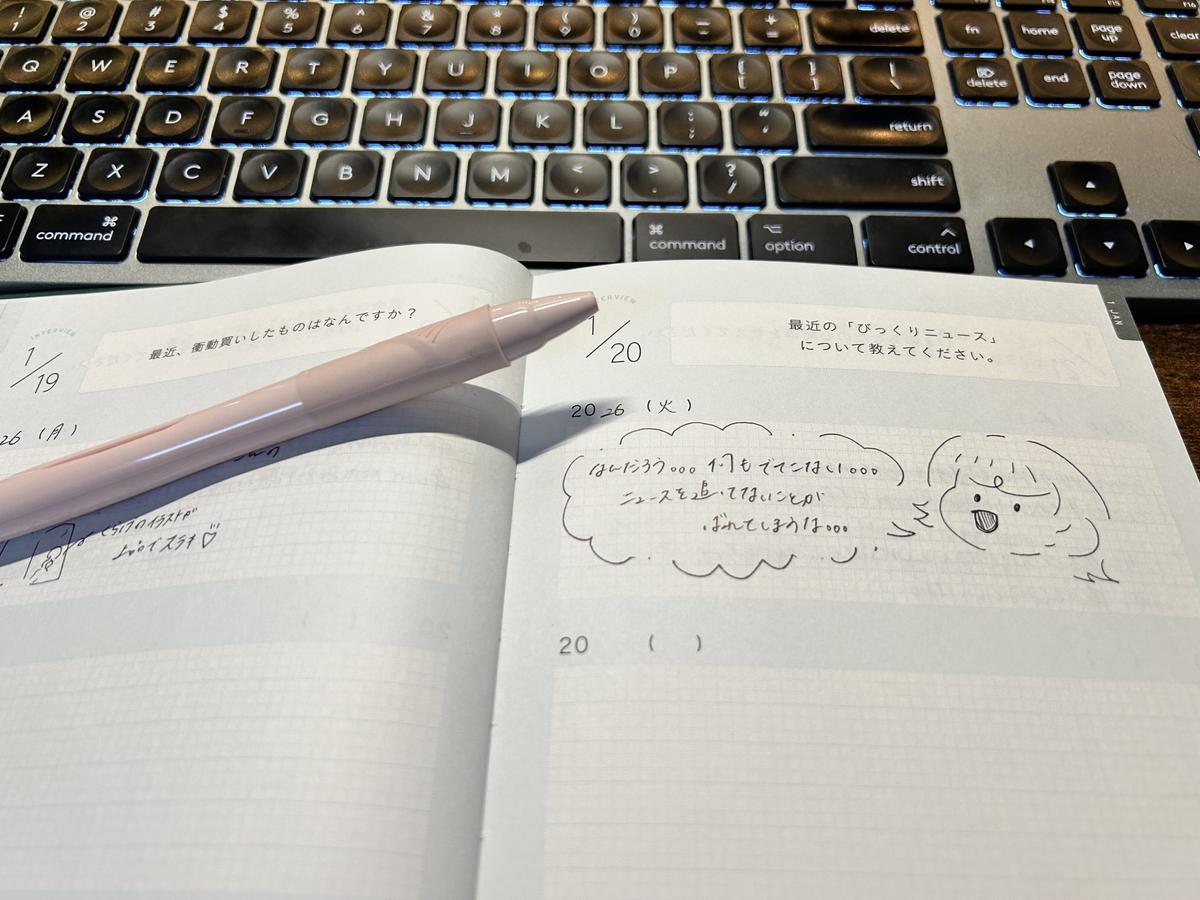 ! 1
@ 2
# 3
$ 4
% 5
^ 6
& 7
* 8
( 9
) 0
delete
fn
home
page up
clear
Q W E R T Y U I O P { [ } ] | \
delete
end
page down
A S D F G H J K L : ; " '
return
Z X C V B N M < , > . ? /
shift
command
command
option
control
INTERVIEW
1/19
最近、衝動買いしたものはなんですか？
26 (月)
くらげのイラストが
1/20
最近の「びっくりニュース」
について教えてください。
2026 (火)
なんだろう。。。何もでてこない。。。
ニュースを追ってないことが
ばれてしまうな。。。
20 ( )
1 JAN